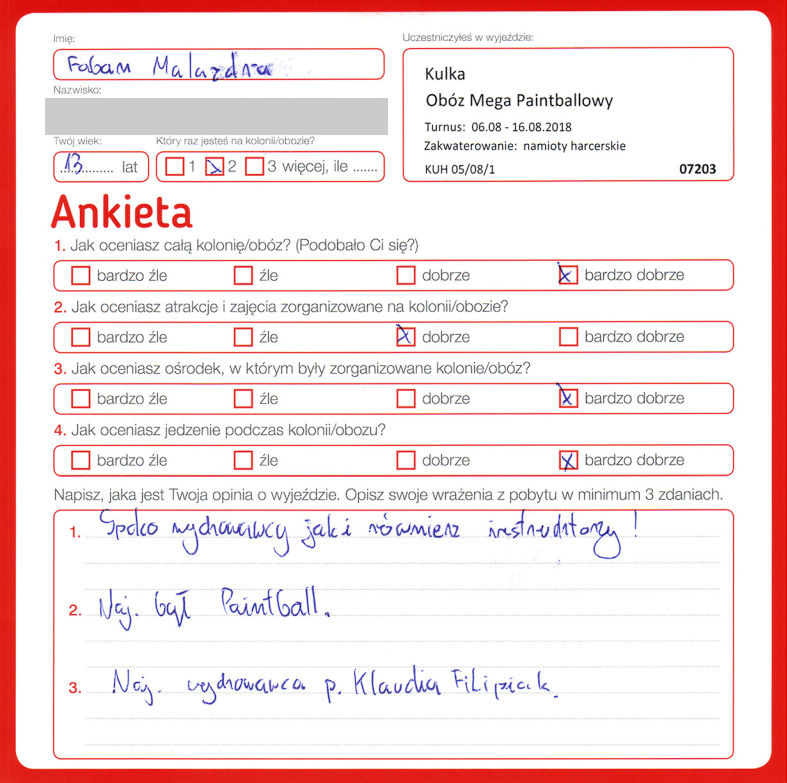 Imię:
Uczestniczyłeś w wyjeździe:
Nazwisko:
Kulka
Obóz Mega Paintballowy
Turnus: 06.08 - 16.08.2018
Zakwaterowanie: namioty harcerskie
KUH 05/08/1 07203
Twój wiek: Który raz jesteś na kolonii/obozie?
13 lat 1 2 3 więcej, ile .......
Ankieta
1. Jak oceniasz całą kolonię/obóz? (Podobało Ci się?)
bardzo źle źle dobrze bardzo dobrze
2. Jak oceniasz atrakcje i zajęcia zorganizowane na kolonii/obozie?
bardzo źle źle dobrze bardzo dobrze
3. Jak oceniasz ośrodek, w którym były zorganizowane kolonie/obóz?
bardzo źle źle dobrze bardzo dobrze
4. Jak oceniasz jedzenie podczas kolonii/obozu?
bardzo źle źle dobrze bardzo dobrze
Napisz, jaka jest Twoja opinia o wyjeździe. Opisz swoje wrażenia z pobytu w minimum 3 zdaniach.
1. Spoko wychowawcy jak i równierz instruktorzy!
2. Naj. był Paintball.
3. Naj. wychowawca p. Klaudia Filipiak.